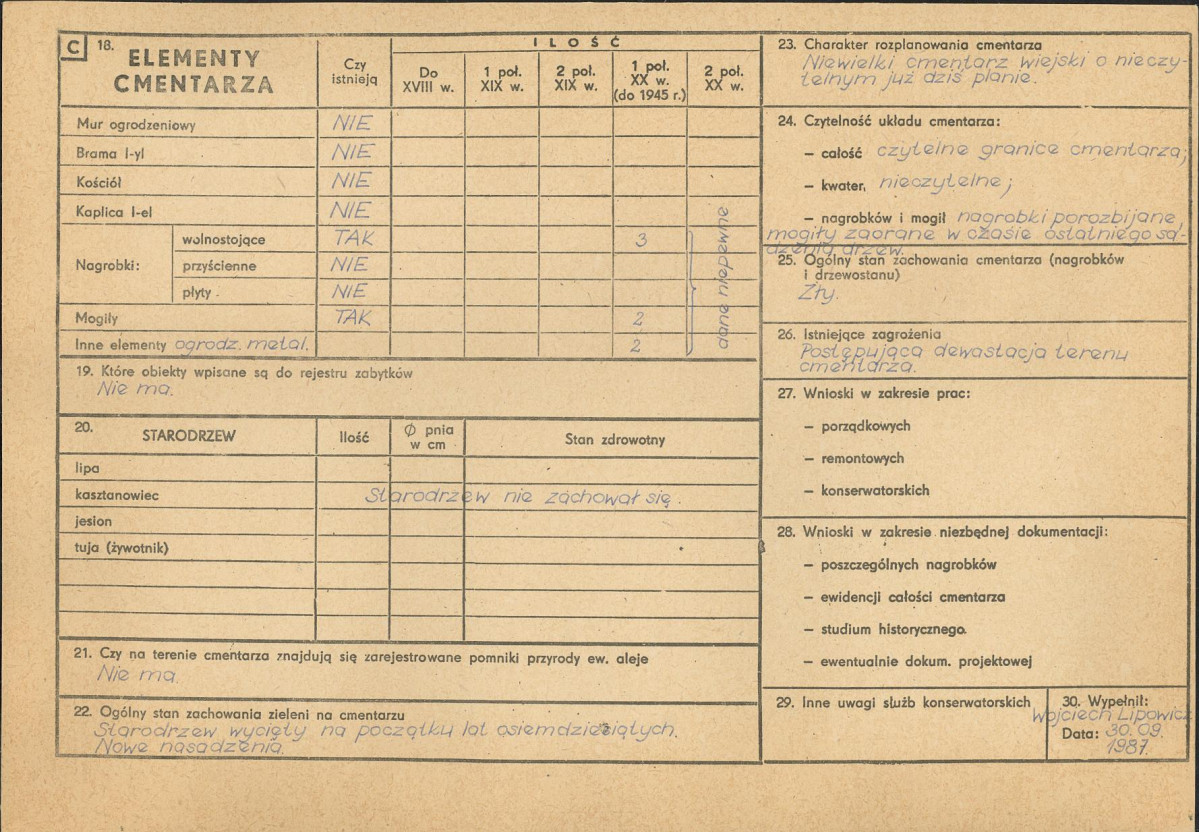 C 18. ELEMENTY CMENTARZA
Czy istnieją
ILOŚĆ
Do XVIII w.
1 poł. XIX w.
2 poł. XIX w.
1 poł. XX w. (do 1945 r.)
2 poł. XX w.
Mur ogrodzeniowy NIE
Brama I-yl NIE
Kościół NIE
Kaplica I-el NIE
Nagrobki:
wolnostojące TAK 3
przyścienne NIE
płyty NIE
Mogiły TAK 2
Inne elementy ogrodz. metal. 2
dane niepewne
19. Które obiekty wpisane są do rejestru zabytków
Nie ma.
20. STARODRZEW Ilość Ø pnia w cm Stan zdrowotny
lipa
kasztanowiec Starodrzew nie zachował się.
jesion
tuja (żywotnik)
21. Czy na terenie cmentarza znajdują się zarejestrowane pomniki przyrody ew. aleje
Nie ma.
22. Ogólny stan zachowania zieleni na cmentarzu
Starodrzew wycięty na początku lat osiemdziesiątych.
Nowe nasadzenia.
23. Charakter rozplanowania cmentarza
Niewielki cmentarz wiejski o nieczy-
telnym już dziś planie.
24. Czytelność układu cmentarza:
— całość czytelne granice cmentarza;
— kwater, nieczytelne;
— nagrobków i mogił nagrobki porozbijane,
mogiły zaorane w czasie ostatniego sa-
dzenia drzew.
25. Ogólny stan zachowania cmentarza (nagrobków
i drzewostanu)
Zły.
26. Istniejące zagrożenia
Postępująca dewastacja terenu
cmentarza.
27. Wnioski w zakresie prac:
— porządkowych
— remontowych
— konserwatorskich
28. Wnioski w zakresie niezbędnej dokumentacji:
— poszczególnych nagrobków
— ewidencji całości cmentarza
— studium historycznego.
— ewentualnie dokum. projektowej
29. Inne uwagi służb konserwatorskich
30. Wypełnił:
Wojciech Lipowicz
Data: 30.09.
1987.